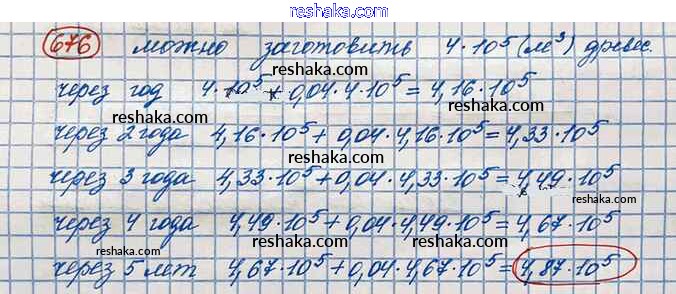 reshaka.com
676 можно заготовить 4·10⁵ (м³) древес.
reshaka.com
через год 4·10⁵ + 0,04·4·10⁵ = 4,16·10⁵
reshaka.com
через 2 года 4,16·10⁵ + 0,04·4,16·10⁵ = 4,33·10⁵
reshaka.com reshaka.com
через 3 года 4,33·10⁵ + 0,04·4,33·10⁵ = 4,49·10⁵
reshaka.com
через 4 года 4,49·10⁵ + 0,04·4,49·10⁵ = 4,67·10⁵
reshaka.com reshaka.com reshaka.com
через 5 лет 4,67·10⁵ + 0,04·4,67·10⁵ = 4,87·10⁵
reshaka.com